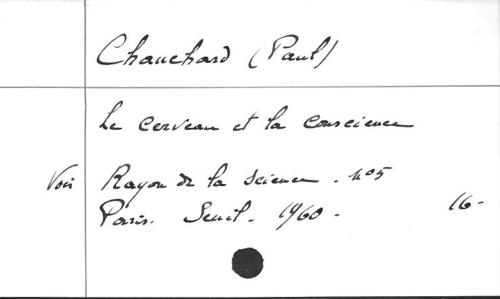 Chauchard (Paul)
Le cerveau et la conscience
Voir Rayon de la Science. n°5
Paris. Seuil. 1960. 16-